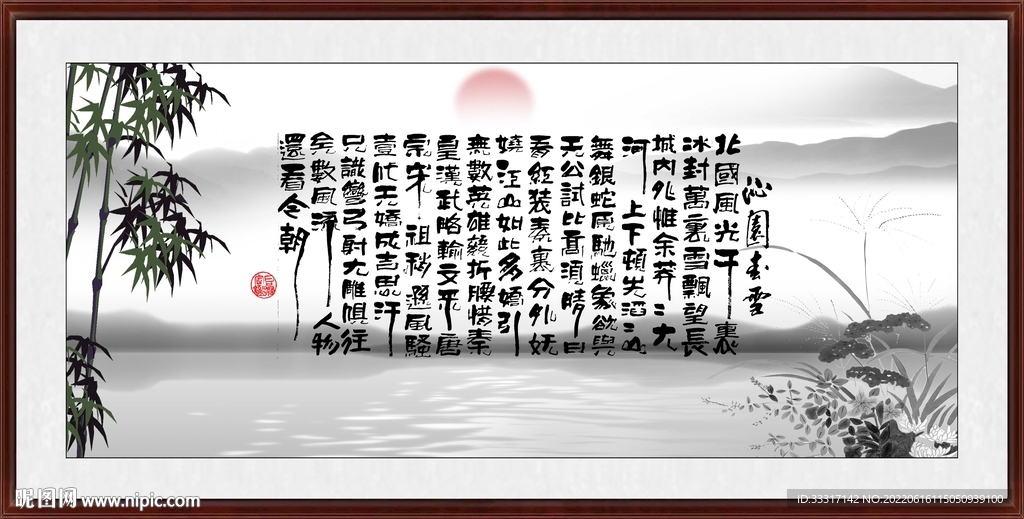 沁園春雪
北國風光千裏
冰封萬裏雪飄望長
城内外惟余莽〻大
河上下頓失滔〻山
舞銀蛇原馳蠟象欲與
天公試比高須晴日
看紅裝素裹分外妖
嬈江山如此多嬌引
無數英雄競折腰惜秦
皇漢武略輸文采唐
宗宋祖稍遜風騷
壹代天嬌成吉思汗
只識彎弓射大雕俱往
矣數風流人物
還看今朝
昵图网 www.nipic.com
ID:33317142 NO:20220616115050939100